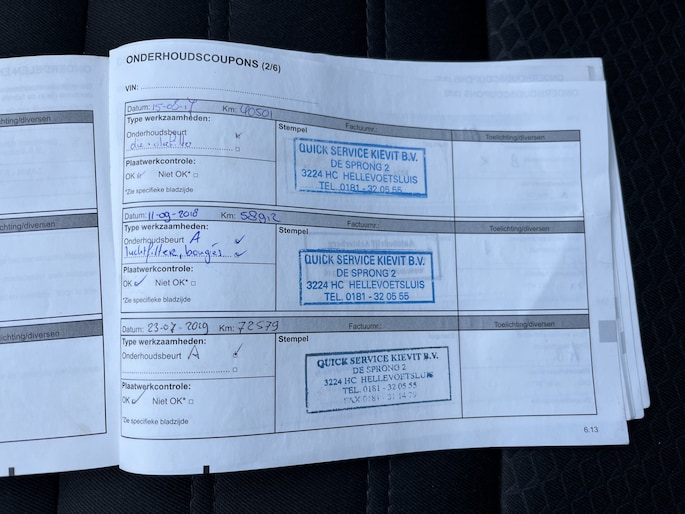 ONDERHOUDSCOUPONS (2/6)
VIN:
Datum: 15-08-17 Km: 40501
Type werkzaamheden:
Onderhoudsbeurt
Stempel Factuurnr.:
Toelichting/diversen
QUICK SERVICE KIEVIT B.V.
DE SPRONG 2
3224 HC HELLEVOETSLUIS
TEL. 0181 - 32 05 55
Plaatwerkcontrole:
OK Niet OK*
*Zie specifieke bladzijde
Datum: 11-09-2018 Km:
Type werkzaamheden:
Onderhoudsbeurt A
luchtfilter, bougies
Stempel Factuurnr.:
Toelichting/diversen
QUICK SERVICE KIEVIT B.V.
DE SPRONG 2
3224 HC HELLEVOETSLUIS
TEL. 0181 - 32 05 55
Plaatwerkcontrole:
OK Niet OK*
*Zie specifieke bladzijde
Datum: 23-07-2019 Km: 72579
Type werkzaamheden:
Onderhoudsbeurt A
Stempel Factuurnr.:
Toelichting/diversen
QUICK SERVICE KIEVIT B.V.
DE SPRONG 2
3224 HC HELLEVOETSLUIS
TEL. 0181 - 32 05 55
FAX 0181 - 31 14 79
Plaatwerkcontrole:
OK Niet OK*
*Zie specifieke bladzijde
6.13
chting/diversen
chting/diversen
chting/diversen